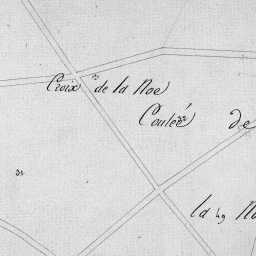 Croix de la Noe
Coulée de
la No